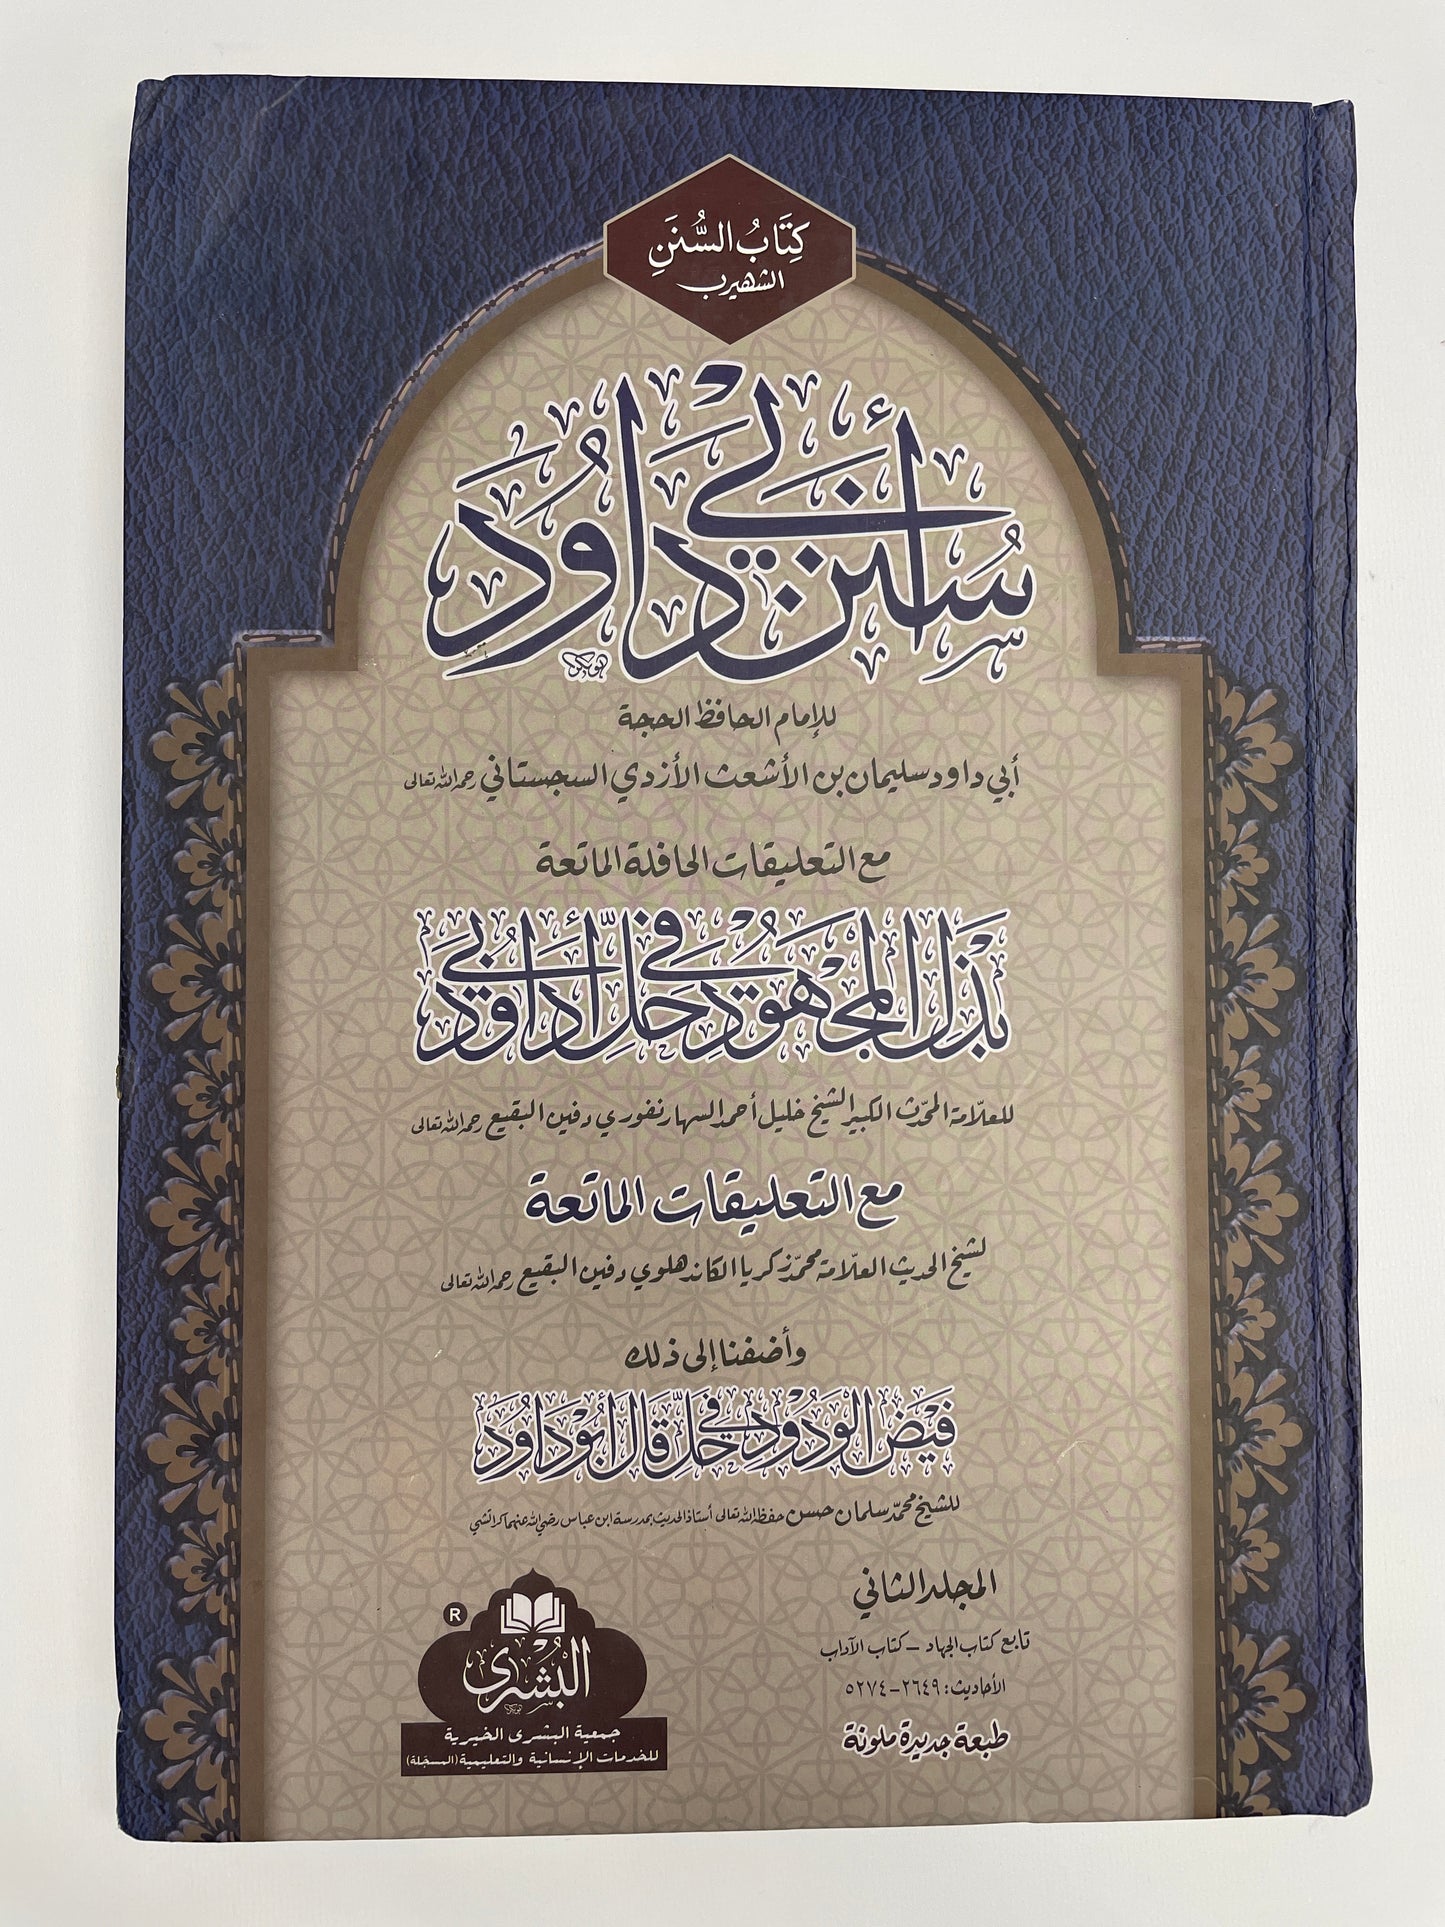 كِتَابُ السُّنَنِ
الشهير بـ
سُنَن أَبِي دَاوُدَ
للإمام الحافظ الحجة
أبي داود سليمان بن الأشعث الأزدي السجستاني رحمه الله تعالى
مع التعليقات الحافلة الماتعة
بَذلُ المَجْهُودِ فِي حَلِّ أَبِي دَاوُدَ
للعلّامة المحدّث الكبير الشيخ خليل أحمد السهارنفوري دفين البقيع رحمه الله تعالى
مع التعليقات الماتعة
لشيخ الحديث العلّامة محمّد زكريا الكاندهلوي دفين البقيع رحمه الله تعالى
وأضفنا إلى ذلك
فَيْضَ الوَدُودِ فِي حَلِّ قَالَ أَبُو دَاوُدَ
للشيخ محمّد سلمان حسن حفظه الله تعالى أستاذ الحديث بمدرسة ابن عباس رضي الله عنهما كراتشي
المجلد الثاني
تابع كتاب الجهاد – كتاب الآداب
الأحاديث: ٢٦٤٩–٥٢٧٤
طبعة جديدة ملونة
R
البُشْرى
جمعية البشرى الخيرية
للخدمات الإنسانية والتعليمية (المسجّلة)